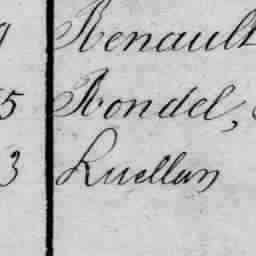 Renault
5 Rondel,
3 Ruellan